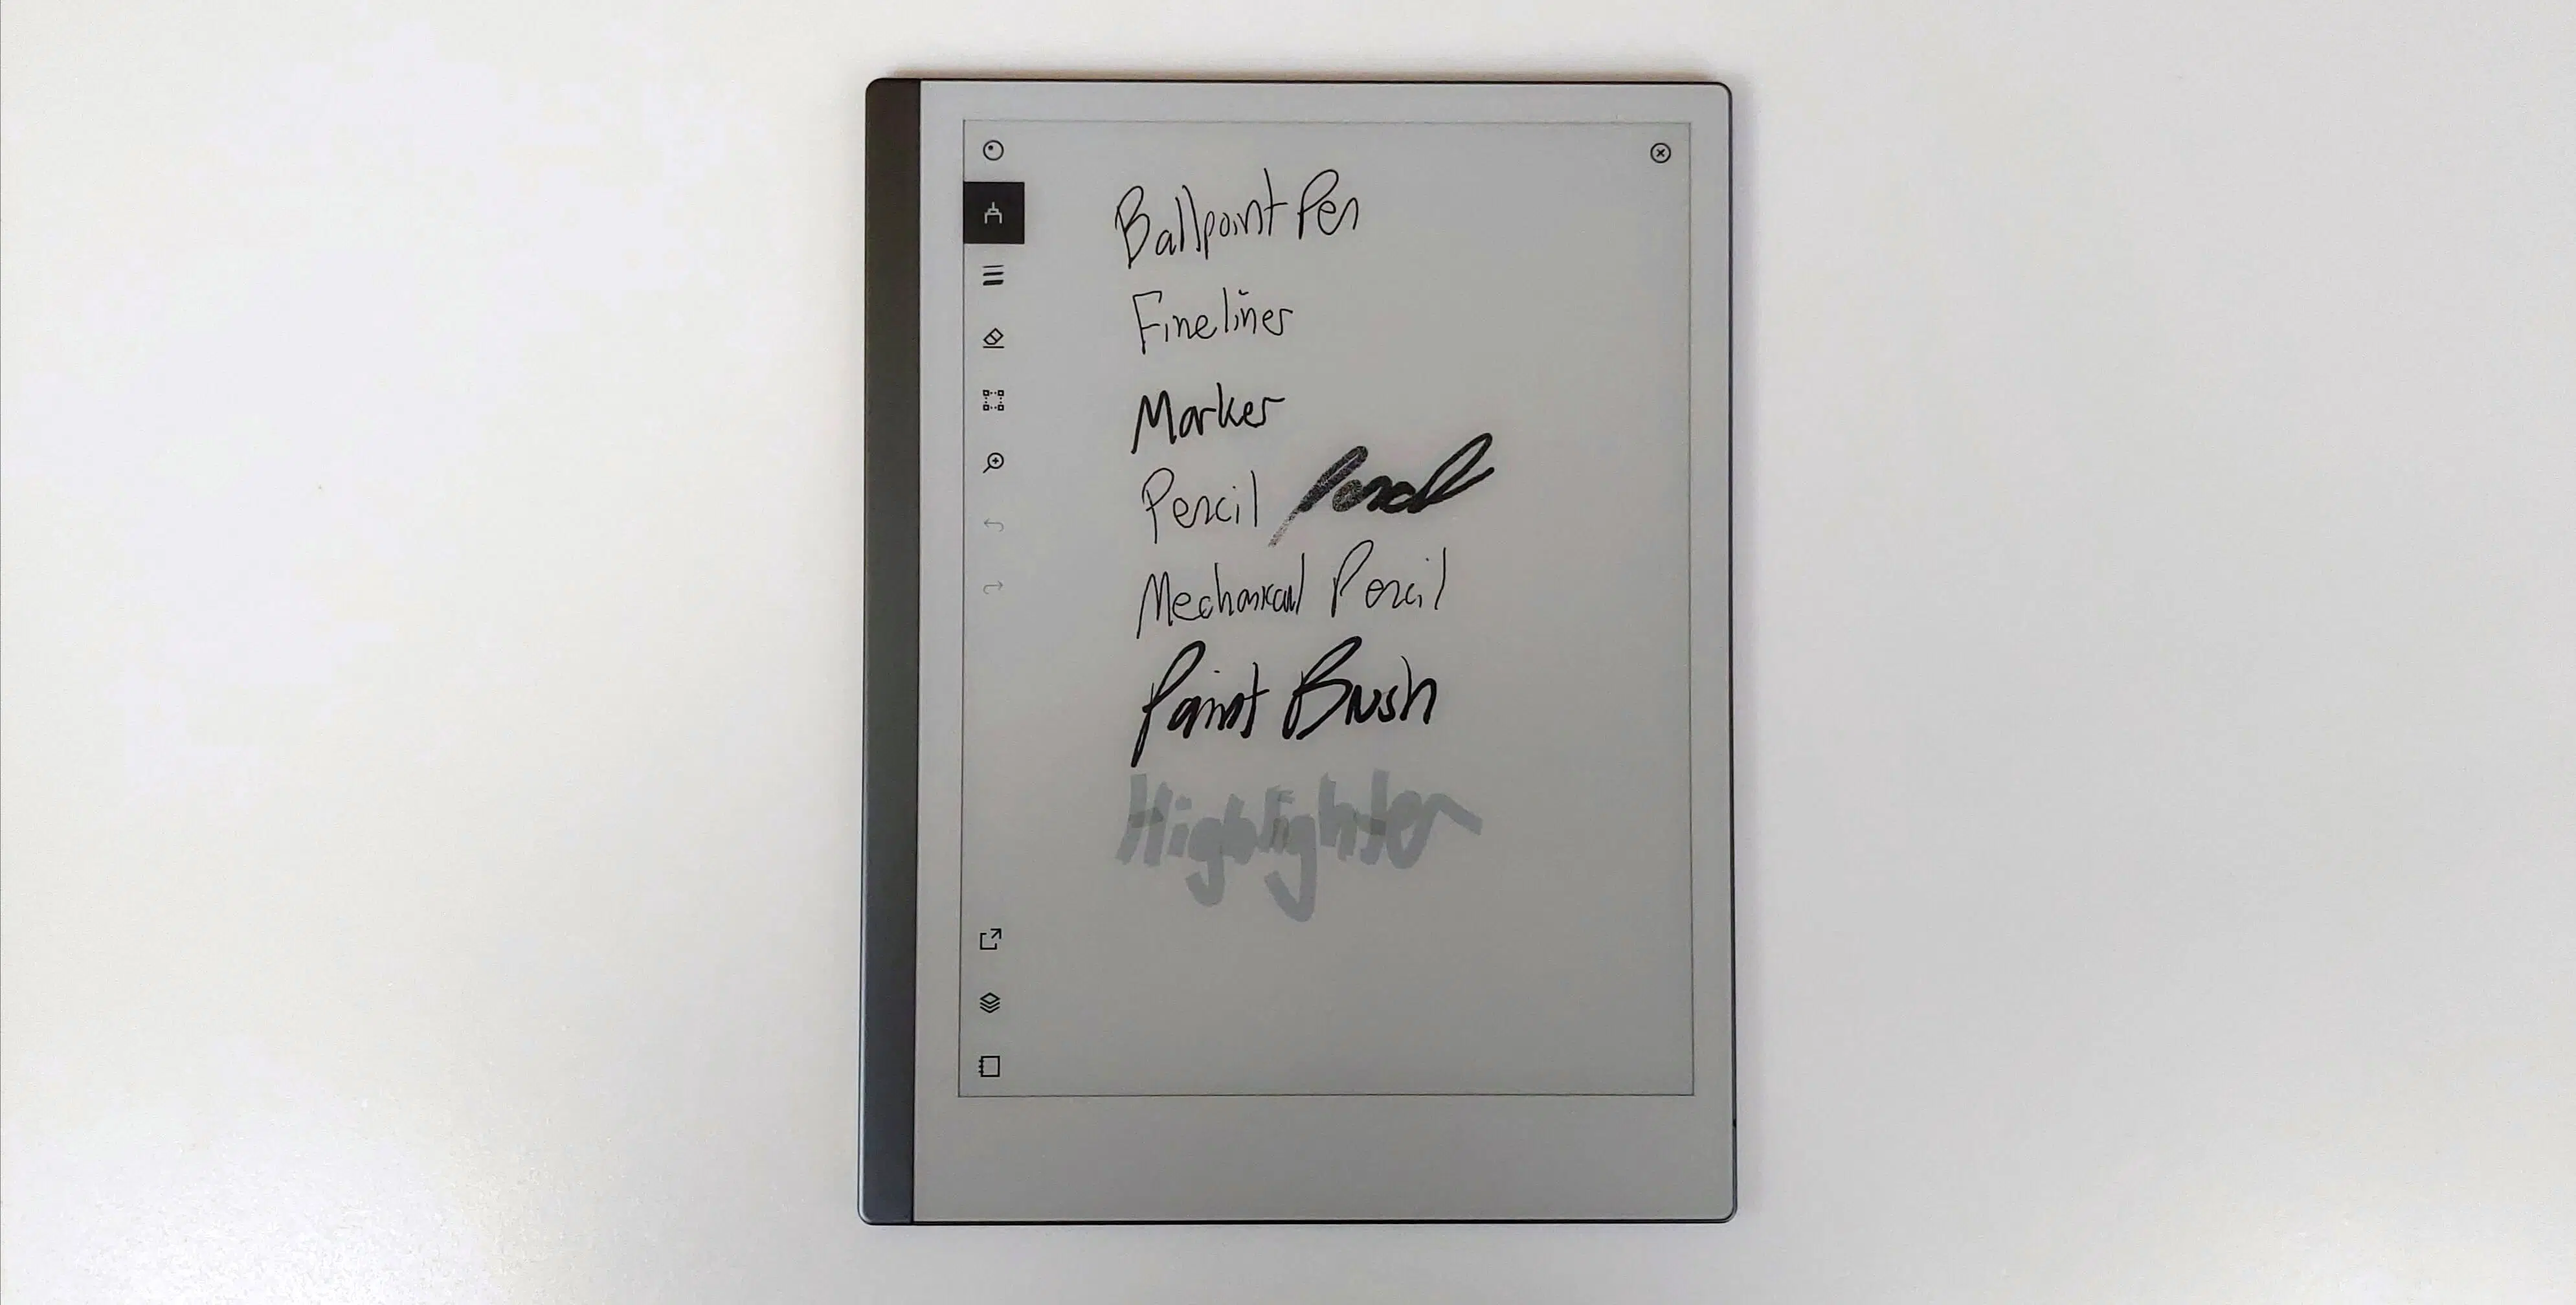 Ballpoint Pen
Fineliner
Marker
Pencil Pencil
Mechanical Pencil
Paint Brush
Highlighter